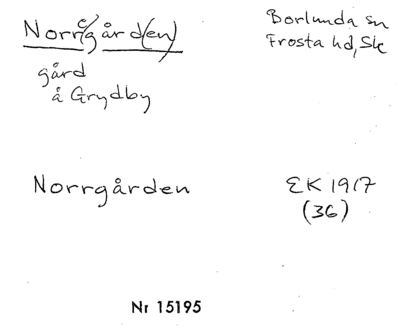 Norr(e)gård(en)
Borlunda sn
Frosta hd, Sk
gård
å Grydby
Norrgården
EK 1917
(36)
Nr 15195